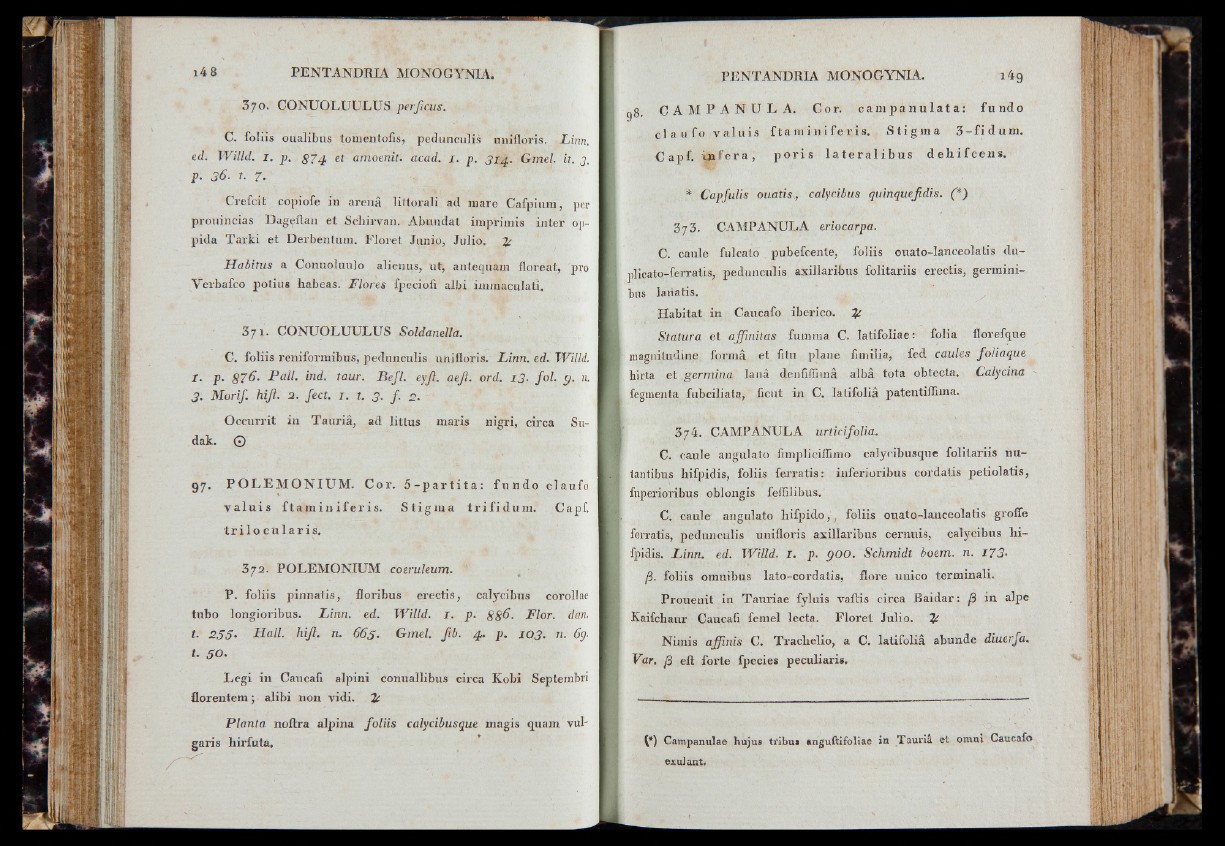 148 PENTANDRIA MONOGYNIA.
370. CONUOLUULUS perſicus.
C. foliis oualibus tomentoſis, pedunculis unifloris. Linn.
ed. Willd. 1. p. 874 et amoenit. acad. 1. p. 314. Gmel. it. 3.
p. 36. t. 7.
Creſcit copioſe in arenâ littorali ad mare Caſpium, per
prouincias Dageſtan et Schirvan. Abundat imprimis inter op-
pida Tarki et Derbentum. Floret Junio, Julio. ♃
Habitus a Conuoluulo alienus, ut, antequam floreat, pro
Verbaſco potius habeas. Flores ſpecioſi albi immaculati.
371. CONUOLUULUS Soldanella.
C. foliis reniformibus, pedunculis unifloris. Linn. ed. Willd.
1. p. 876. Pall. ind. taur. Beſl. eyſt. aeſt. ord. 13. fol. 9. n.
3. Moriſ. hiſt. 2. ſect. 1. t. 3. f. 2.
Occurrit in Tauriâ, ad littus maris nigri, circa Su-
dak. ☉
97. POLEMONIUM. Cor. 5-partita: fundo clauſo
valuis ſtaminiferis. Stigma trifidum. Capſ.
trilocularis.
372. POLEMONIUM coeruleum.
P. foliis pinnatis, floribus erectis, calycibus corollae
tubo longioribus. Linn. ed. Willd. 1. p. 886. Flor. dan.
t. 255. Hall. hiſt. n. 665. Gmel. ſib. 4. p. 103. n. 69.
t. 50.
Legi in Caucaſi alpini conuallibus circa Kobi Septembri
florentem; alibi non vidi. ♃
Planta noſtra alpina foliis calycibusque magis quam vul-
garis hirſuta.
PENTANDRIA MONOGYNIA. 149
98. CAMPANULA. Cor. campanulata: fundo
clauſo valuis ſtaminiferis. Stigma 3-fidum.
Capſ. infera, poris lateralibus dehiſcens.
* Capſulis ouatis, calycibus quinquefidis. (*)
373. CAMPANULA eriocarpa.
C. caule ſulcato pubeſcente, foliis ouato-lanceolatis du-
plicato-ſerratis, pedunculis axillaribus ſolitariis erectis, germini-
bus lanatis.
Habitat in Caucaſo iberico. ♃
Statura et affinitas ſumma C. latifoliae: folia floreſque
magnitudine formâ et ſitu plane ſimilia, ſed caules foliaque
hirta et germina lanâ denſiſſimâ albâ tota obtecta. Calycina
ſegmenta ſubciliata, ſicut in C. latifoliâ patentiſſima.
374. CAMPANULA urticifolia.
C. caule angulato ſimpliciſſimo calycibusque ſolitariis nu-
tantibus hiſpidis, foliis ſerratis: inferioribus cordatis petiolatis,
ſuperioribus oblongis ſeſſilibus.
C. caule angulato hiſpido, foliis ouato-lanceolatis groſſe
ſerratis, pedunculis unifloris axillaribus cernuis, calycibus hi-
ſpidis. Linn. ed. Willd. 1. p. 900. Schmidt boem. n. 173.
β. foliis omnibus lato-cordatis, flore unico terminali.
Prouenit in Tauriae ſyluis vaſtis circa Baidar: β in alpe
Kaiſchaur Caucaſi ſemel lecta. Floret Julio. ♃
Nimis affinis C. Trachelio, a C. latifoliâ abunde diuerſa.
Var. β eſt forte ſpecies peculiaris.
(*) Campanulae hujus tribus anguſtifoliae in Tauriâ et omni Caucaſo
exulant.